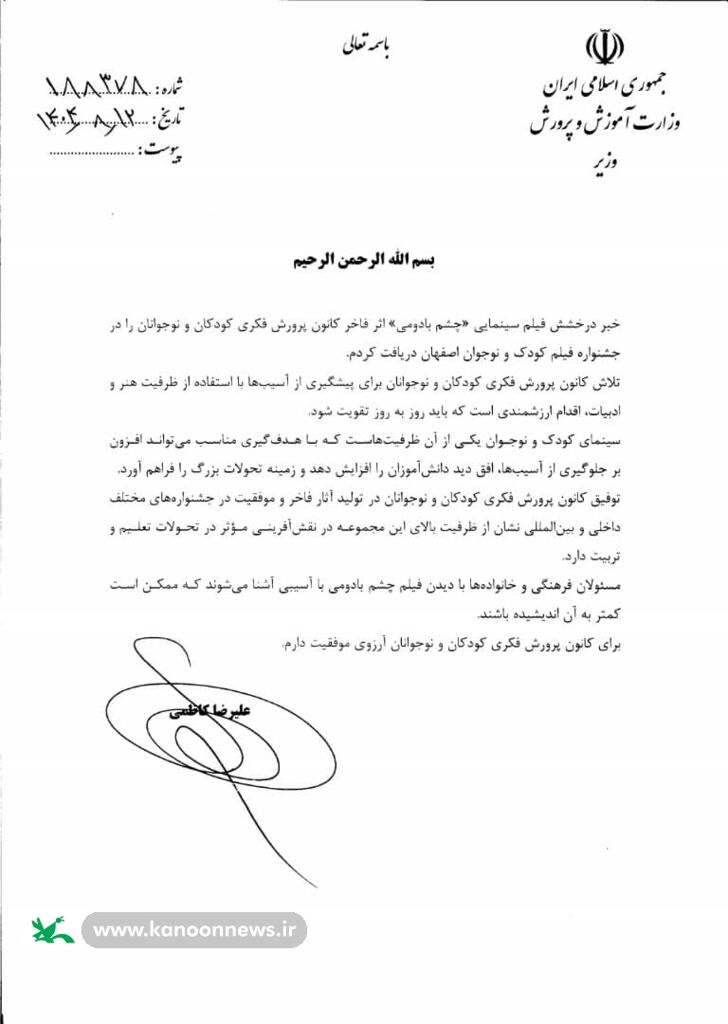 باسمه تعالی
جمهوری اسلامی ایران
وزارت آموزش و پرورش
وزیر
شماره: ۱۸۸۳۷۸
تاریخ: ۱۴۰۴/۸/۱۲
پیوست: ........................
بسم الله الرحمن الرحیم
خبر درخشش فیلم سینمایی «چشم بادومی» اثر فاخر کانون پرورش فکری کودکان و نوجوانان را در
جشنواره فیلم کودک و نوجوان اصفهان دریافت کردم.
تلاش کانون پرورش فکری کودکان و نوجوانان برای پیشگیری از آسیب‌ها با استفاده از ظرفیت هنر و
ادبیات، اقدام ارزشمندی است که باید روز به روز تقویت شود.
سینمای کودک و نوجوان یکی از آن ظرفیت‌هاست که با هدف‌گیری مناسب می‌تواند افزون
بر جلوگیری از آسیب‌ها، افق دید دانش‌آموزان را افزایش دهد و زمینه تحولات بزرگ را فراهم آورد.
توفیق کانون پرورش فکری کودکان و نوجوانان در تولید آثار فاخر و موفقیت در جشنواره‌های مختلف
داخلی و بین‌المللی نشان از ظرفیت بالای این مجموعه در نقش‌آفرینی مؤثر در تحولات تعلیم و
تربیت دارد.
مسئولان فرهنگی و خانواده‌ها با دیدن فیلم چشم بادومی با آسیبی آشنا می‌شوند که ممکن است
کمتر به آن اندیشیده باشند.
برای کانون پرورش فکری کودکان و نوجوانان آرزوی موفقیت دارم.
علیرضا کاظمی
www.kanoonnews.ir